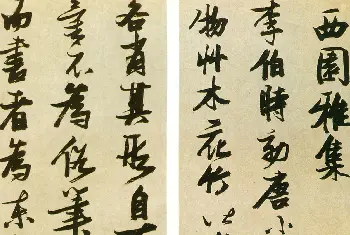 西園雅集
李伯時効唐小
物艸木花竹
各肖其形自
不為俗筆
而書者為東